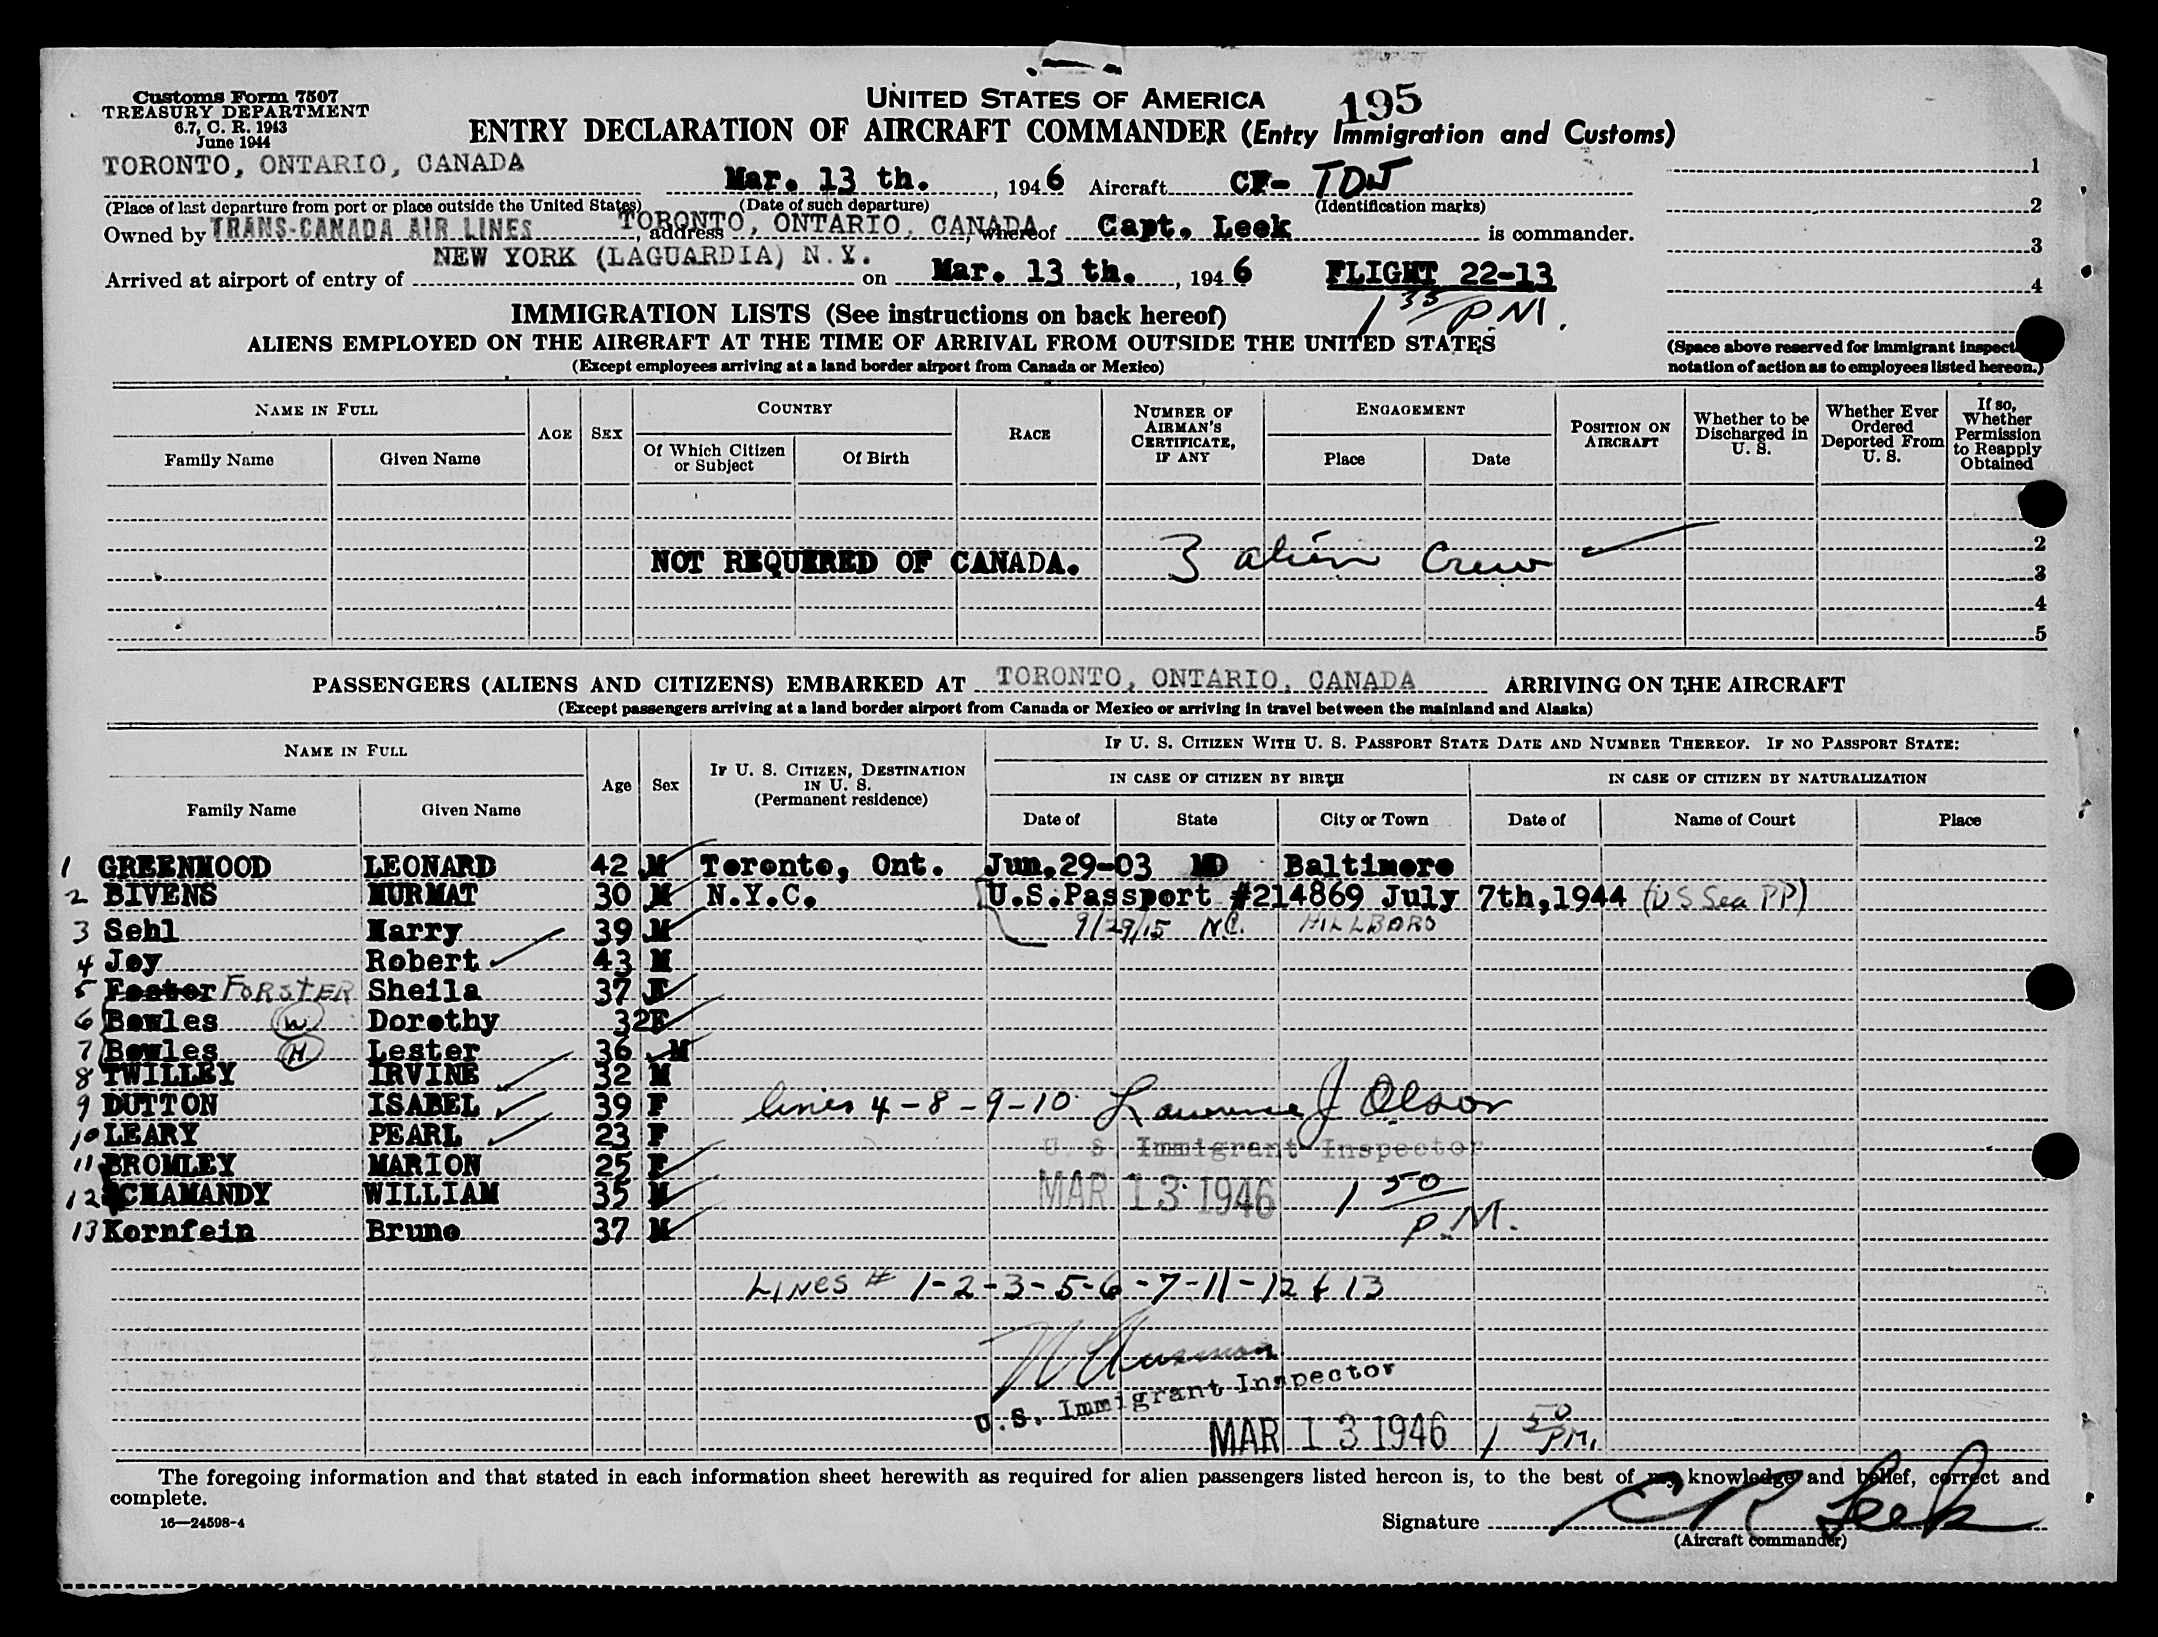 Customs Form 7507
TREASURY DEPARTMENT
6.7, C. R. 1943
June 1944
UNITED STATES OF AMERICA
195
ENTRY DECLARATION OF AIRCRAFT COMMANDER (Entry Immigration and Customs)
TORONTO, ONTARIO, CANADA
Mar. 13 th., 1946 Aircraft CF-TDJ
(Place of last departure from port or place outside the United States) (Date of such departure) (Identification marks)
Owned by TRANS-CANADA AIR LINES, address TORONTO, ONTARIO, CANADA, whereof Capt. Leek is commander.
Arrived at airport of entry of NEW YORK (LAGUARDIA) N.Y. on Mar. 13 th., 1946 FLIGHT 22-13
1 35 P.M.
1
2
3
4
(Space above reserved for immigrant inspect
notation of action as to employees listed hereon.)
IMMIGRATION LISTS (See instructions on back hereof)
ALIENS EMPLOYED ON THE AIRCRAFT AT THE TIME OF ARRIVAL FROM OUTSIDE THE UNITED STATES
(Except employees arriving at a land border airport from Canada or Mexico)
NAME IN FULL
Family Name Given Name
AGE SEX
COUNTRY
Of Which Citizen or Subject Of Birth
RACE
NUMBER OF AIRMAN'S CERTIFICATE, IF ANY
ENGAGEMENT
Place Date
POSITION ON AIRCRAFT
Whether to be Discharged in U. S.
Whether Ever Ordered Deported From U. S.
If so, Whether Permission to Reapply Obtained
2
NOT REQUIRED OF CANADA. 3 alien Crew 3
4
5
PASSENGERS (ALIENS AND CITIZENS) EMBARKED AT TORONTO, ONTARIO, CANADA ARRIVING ON THE AIRCRAFT
(Except passengers arriving at a land border airport from Canada or Mexico or arriving in travel between the mainland and Alaska)
NAME IN FULL
Family Name Given Name
Age Sex
IF U. S. CITIZEN, DESTINATION IN U. S.
(Permanent residence)
IF U. S. CITIZEN WITH U. S. PASSPORT STATE DATE AND NUMBER THEREOF. IF NO PASSPORT STATE:
IN CASE OF CITIZEN BY BIRTH IN CASE OF CITIZEN BY NATURALIZATION
Date of State City or Town Date of Name of Court Place
1 GREENWOOD LEONARD 42 M Toronto, Ont. Jun.29-03 MD Baltimore
2 BIVENS MURMAT 30 M N.Y.C. U.S.Passport #214869 July 7th,1944 (US Sea PP)
3 Sehl Harry 39 M 9/29/15 N.C. HILLBORO
4 Joy Robert 43 M
5 Foster FORSTER Sheila 37 F
6 Bowles W Dorothy 32 F
7 Bowles H Lester 36 M
8 TWILLEY IRVINE 32 M
9 DUTTON ISABEL 39 F lines 4-8-9-10 Lawrence J Olson
10 LEARY PEARL 23 F U. S. Immigrant Inspector
11 BROMLEY MARION 25 F
12 CHAMANDY WILLIAM 35 M MAR 13 1946 1 50 P.M.
13 Kornfein Bruno 37 M
LINES # 1-2-3-5-6-7-11-12 & 13
U.S. Immigrant Inspector
MAR 13 1946 1 50 PM.
The foregoing information and that stated in each information sheet herewith as required for alien passengers listed hereon is, to the best of my knowledge and belief, correct and
complete.
16—24598-4
Signature C R Leek
(Aircraft commander)